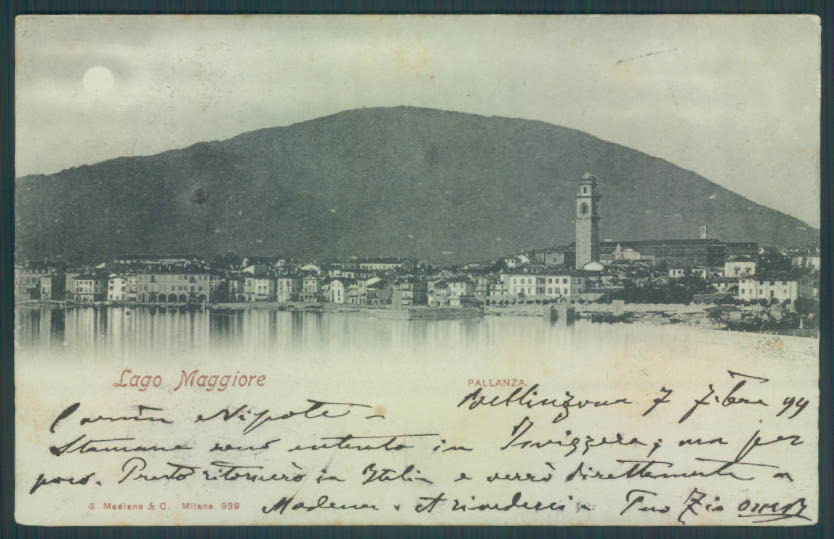 Lago Maggiore
PALLANZA.
Bellinzona 7 7bre 99
Carmin Nipote -
Stamane sono entrato in Svizzera; ma per
poco. Presto ritornerò in Italia e verrò direttamente a
Modena. Arrivederci. Tuo Zio
G. Modiano & C. Milano. 939